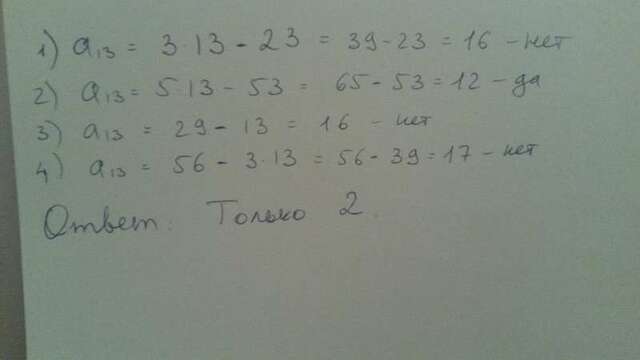 1) a₁₃ = 3·13 - 23 = 39 - 23 = 16 - нет
2) a₁₃ = 5·13 - 53 = 65 - 53 = 12 - да
3) a₁₃ = 29 - 13 = 16 - нет
4) a₁₃ = 56 - 3·13 = 56 - 39 = 17 - нет
Ответ: Только 2.